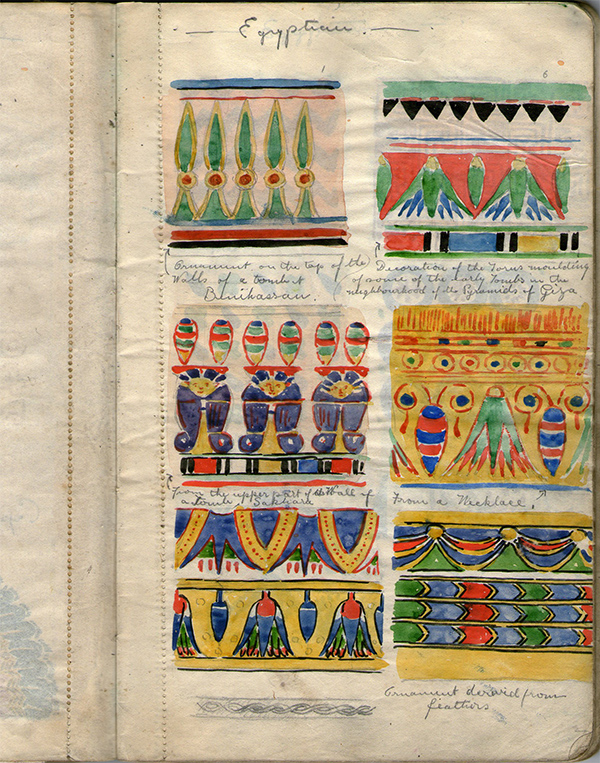 — Egyptian. —
1
6
Ornament on the top of the
Walls of a tomb at
Benihassan.
Decoration of the Torus moulding
of some of the early Tombs in the
neighbourhood of the Pyramids of Giza
From the upper part of the Wall of
a tomb Sakhara
From a Necklace.
Ornament derived from
feathers